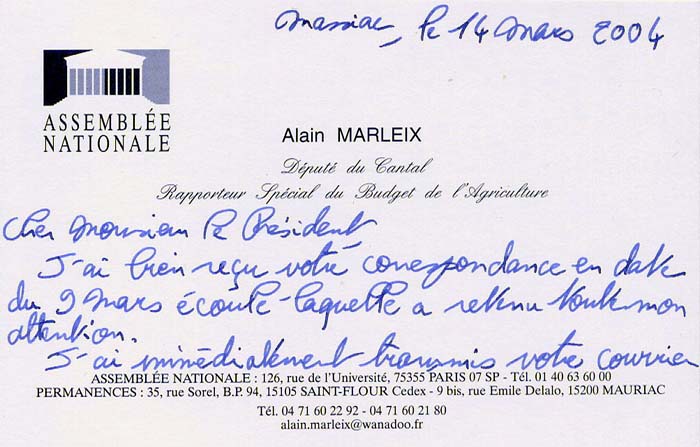 Massiac, le 14 mars 2004
ASSEMBLÉE
NATIONALE
Alain MARLEIX
Député du Cantal
Rapporteur Spécial du Budget de l'Agriculture
Cher Monsieur le Président,
J'ai bien reçu votre correspondance en date
du 9 mars écoulé laquelle a retenu toute mon
attention.
J'ai immédiatement transmis votre courrier
ASSEMBLÉE NATIONALE : 126, rue de l'Université, 75355 PARIS 07 SP - Tél. 01 40 63 60 00
PERMANENCES : 35, rue Sorel, B.P. 94, 15105 SAINT-FLOUR Cedex - 9 bis, rue Emile Delalo, 15200 MAURIAC
Tél. 04 71 60 22 92 - 04 71 60 21 80
alain.marleix@wanadoo.fr